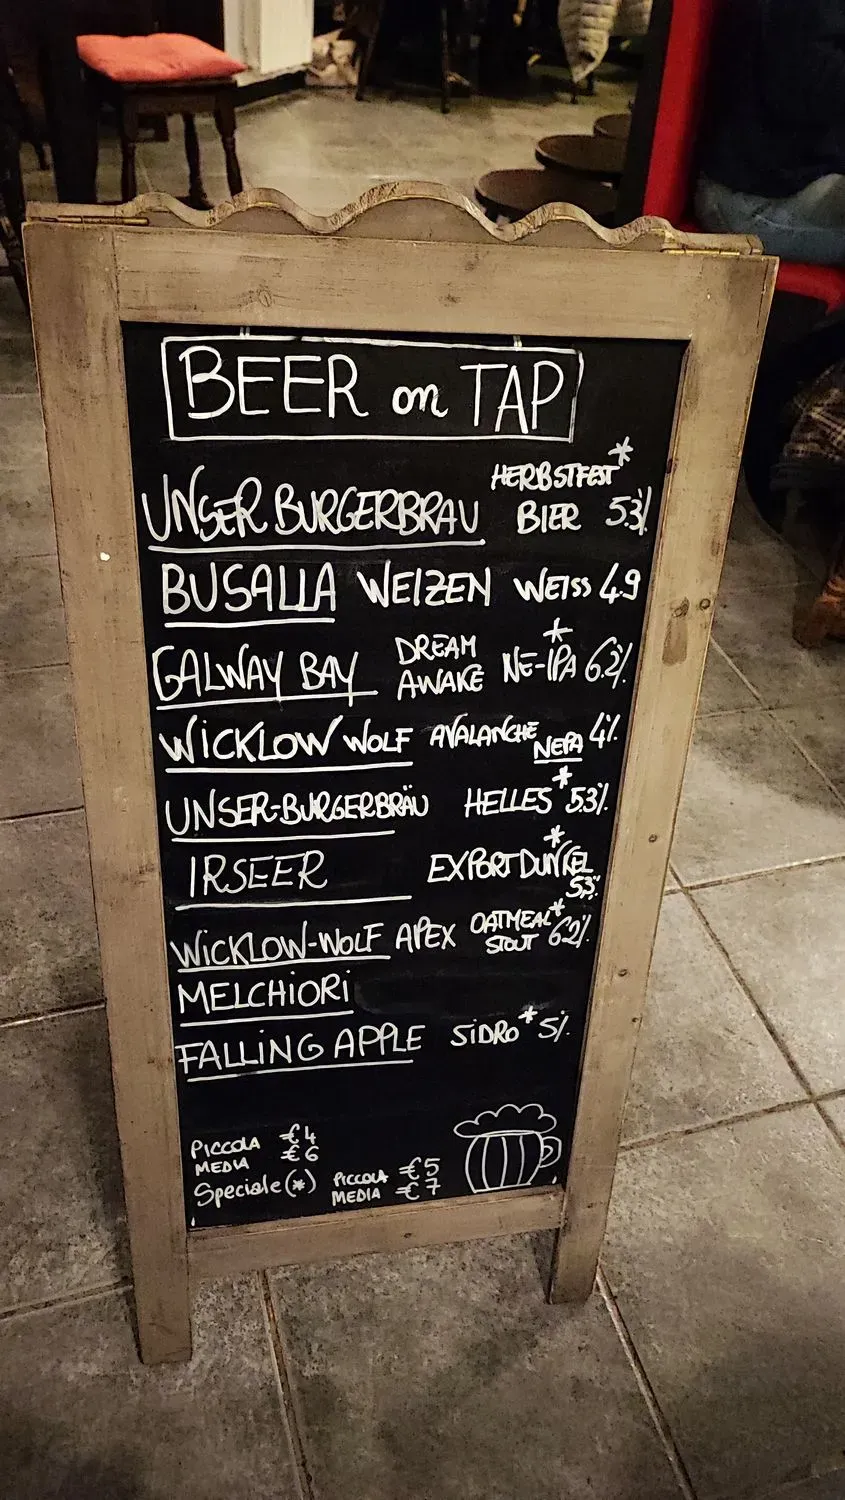 BEER on TAP
UNSER BURGERBRAU HERBSTFEST*
BIER 5.3%
BUSALLA WEIZEN WEISS 4.9
GALWAY BAY DREAM
AWAKE NE-IPA* 6.2%
WICKLOW WOLF AVALANCHE
NEPA 4%
UNSER-BURGERBRÄU HELLES* 5.3%
IRSEER EXPORT DUNKEL*
5.3%
WICKLOW-WOLF APEX OATMEAL*
STOUT 6.2%
MELCHIORI
FALLING APPLE SIDRO* 5%
PICCOLA €4
MEDIA €6
Speciale (*) PICCOLA €5
MEDIA €7